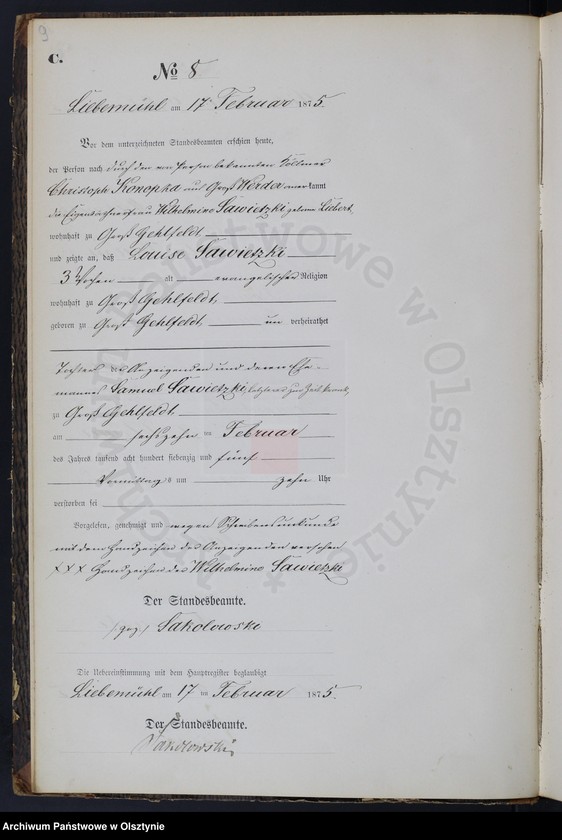 9
C.
No 8
Liebemühl am 17 Februar 1875.
Vor dem unterzeichneten Standesbeamten erschien heute,
der Person nach durch den von Person bekannten Köllmer
Christoph Konopka aus Groß Werder anerkannt
die Eigenkäthnerfrau Wilhelmine Sawietzki, geborne Liebert,
wohnhaft zu Groß Gehlfeldt
und zeigte an, daß Louise Sawietzki
3 Wochen alt evangelischer Religion
wohnhaft zu Groß Gehlfeldt,
geboren zu Groß Gehlfeldt, un verheirathet
Tochter der Anzeigenden und deren Ehe-
mannes Samuel Sawietzki,
zu Groß Gehlfeldt,
am sechszehn ten Februar
des Jahres tausend acht hundert siebenzig und fünf
Vormittags um zehn Uhr
verstorben sei
Vorgelesen, genehmigt und wegen Schreibensunkunde
mit dem Handzeichen der Anzeigenden versehen
xxx Handzeichen der Wilhelmine Sawietzki
Der Standesbeamte.
/gez./ Sakolowski
Die Uebereinstimmung mit dem Hauptregister beglaubigt
Liebemühl am 17 ten Februar 1875.
Der Standesbeamte.
Sakolowski
Archiwum Państwowe w Olsztynie
Archiwum Państwowe w Olsztynie